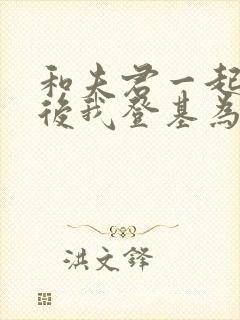 和夫君一起
後我登基為
洪文鋒